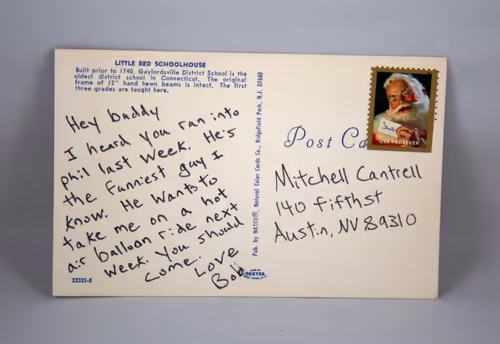 LITTLE RED SCHOOLHOUSE
Built prior to 1740, Gaylordsville District School is the
oldest district school in Connecticut. The original
frame of 12" hand hewn beams is intact. The first
three grades are taught here.
Hey buddy
I heard you ran into
phil last week. He's
the funniest guy I
know. He wants to
take me on a hot
air balloon ride next
week. You should
come.
Love
Bob
52535-B
Pub. by NATCO®, Natural Color Cards Co., Ridgefield Park, N.J. 07660
DEXTER
Post Ca
USA FOREVER
Mitchell Cantrell
140 fifth st
Austin, NV 89310